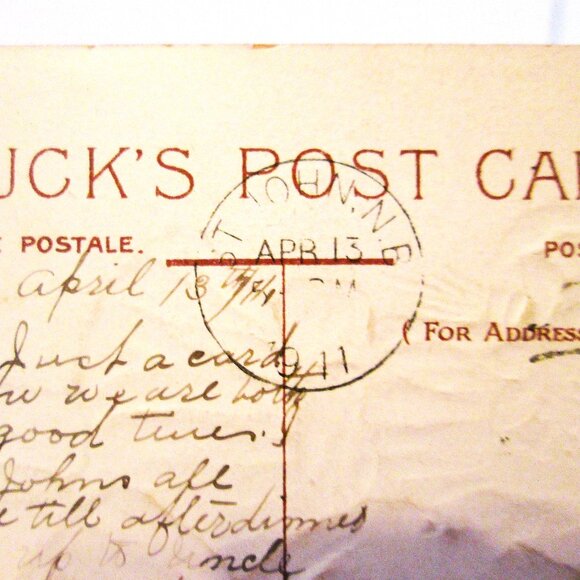 UCK'S POST CA
ST JOHN, N.B
E POSTALE.
APR 13
PM
POS
April 13th
1911
( FOR ADDRESS
Just a card
w we are both
good times.
Johns all
e till after dinner
up to uncle